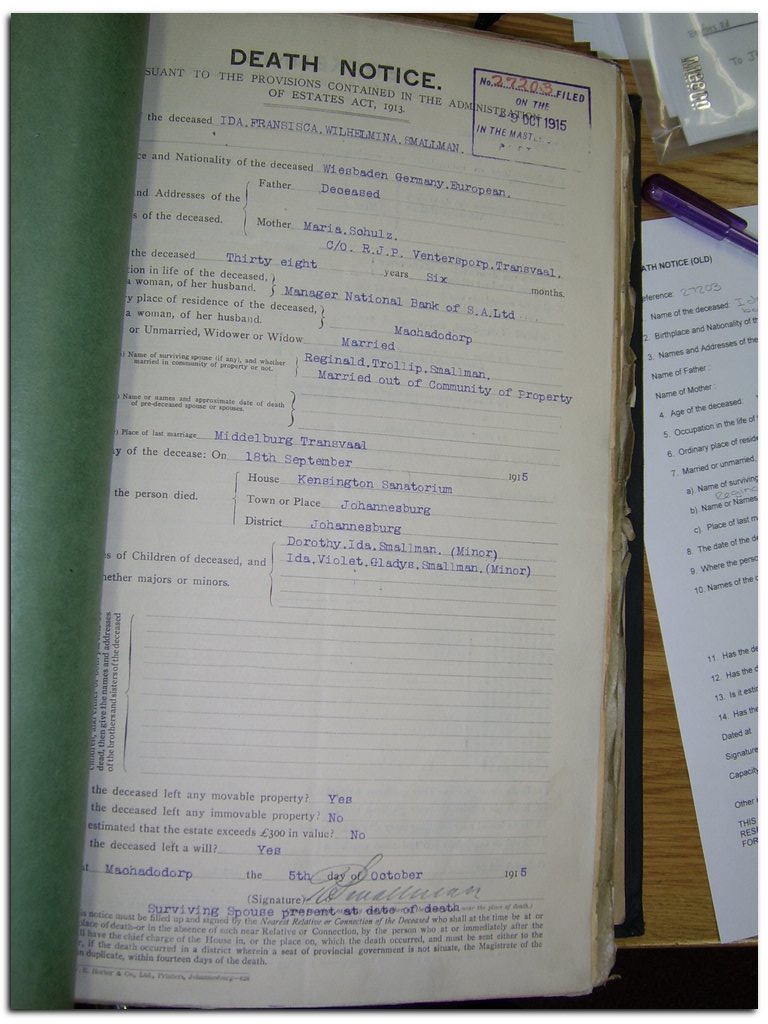 DEATH NOTICE.
SUANT TO THE PROVISIONS CONTAINED IN THE ADMINISTRATION
OF ESTATES ACT, 1913.
No. 27203 FILED
ON THE
9 OCT 1915
IN THE MAST
the deceased IDA.FRANSISCA.WILHELMINA.SMALLMAN.
ce and Nationality of the deceased Wiesbaden Germany.European.
nd Addresses of the
s of the deceased.
Father Deceased
Mother Maria.Schulz.
C/O. R.J.P. Ventersporp.Transvaal.
the deceased Thirty eight years Six months.
ion in life of the deceased,
a woman, of her husband. Manager National Bank of S.A.Ltd
y place of residence of the deceased,
a woman, of her husband. Machadodorp
or Unmarried, Widower or Widow Married
) Name of surviving spouse (if any), and whether
married in community of property or not.
Reginald.Trollip.Smallman.
Married out of Community of Property
) Name or names and approximate date of death
of pre-deceased spouse or spouses.
) Place of last marriage Middelburg Transvaal
y of the decease: On 18th September 1915
the person died.
House Kensington Sanatorium
Town or Place Johannesburg
District Johannesburg
s of Children of deceased, and
hether majors or minors.
Dorothy.Ida.Smallman. (Minor)
Ida.Violet.Gladys.Smallman.(Minor)
dead, then give the names and addresses
of the brothers and sisters of the deceased
the deceased left any movable property? Yes
the deceased left any immovable property? No
estimated that the estate exceeds £300 in value? No
the deceased left a will? Yes
at Machadodorp the 5th day of October 1915
(Signature) Smallman
Surviving Spouse present at date of death
s notice must be filled up and signed by the Nearest Relative or Connection of the Deceased who shall at the time be at or
place of death—or in the absence of such near Relative or Connection, by the person who at or immediately after the
ll have the chief charge of the House in, or the place on, which the death occurred, and must be sent either to the
r, if the death occurred in a district wherein a seat of provincial government is not situate, the Magistrate of the
n duplicate, within fourteen days of the death.
& Co., Ltd., Printers, Johannesburg
ATH NOTICE (OLD)
eference: 27203
Name of the deceased: Ida
2. Birthplace and Nationality of th
3. Names and Addresses of the
Name of Father :
Name of Mother :
4. Age of the deceased:
5. Occupation in the life of
6. Ordinary place of reside
7. Married or unmarried.
a). Name of surviving
b). Name or Names
c). Place of last m
8. The date of the de
9. Where the perso
10. Names of the c
11. Has the de
12. Has the d
13. Is it estir
14. Has the
Dated at
Signature
Capacity
Other
THIS
RES
FOR
To J